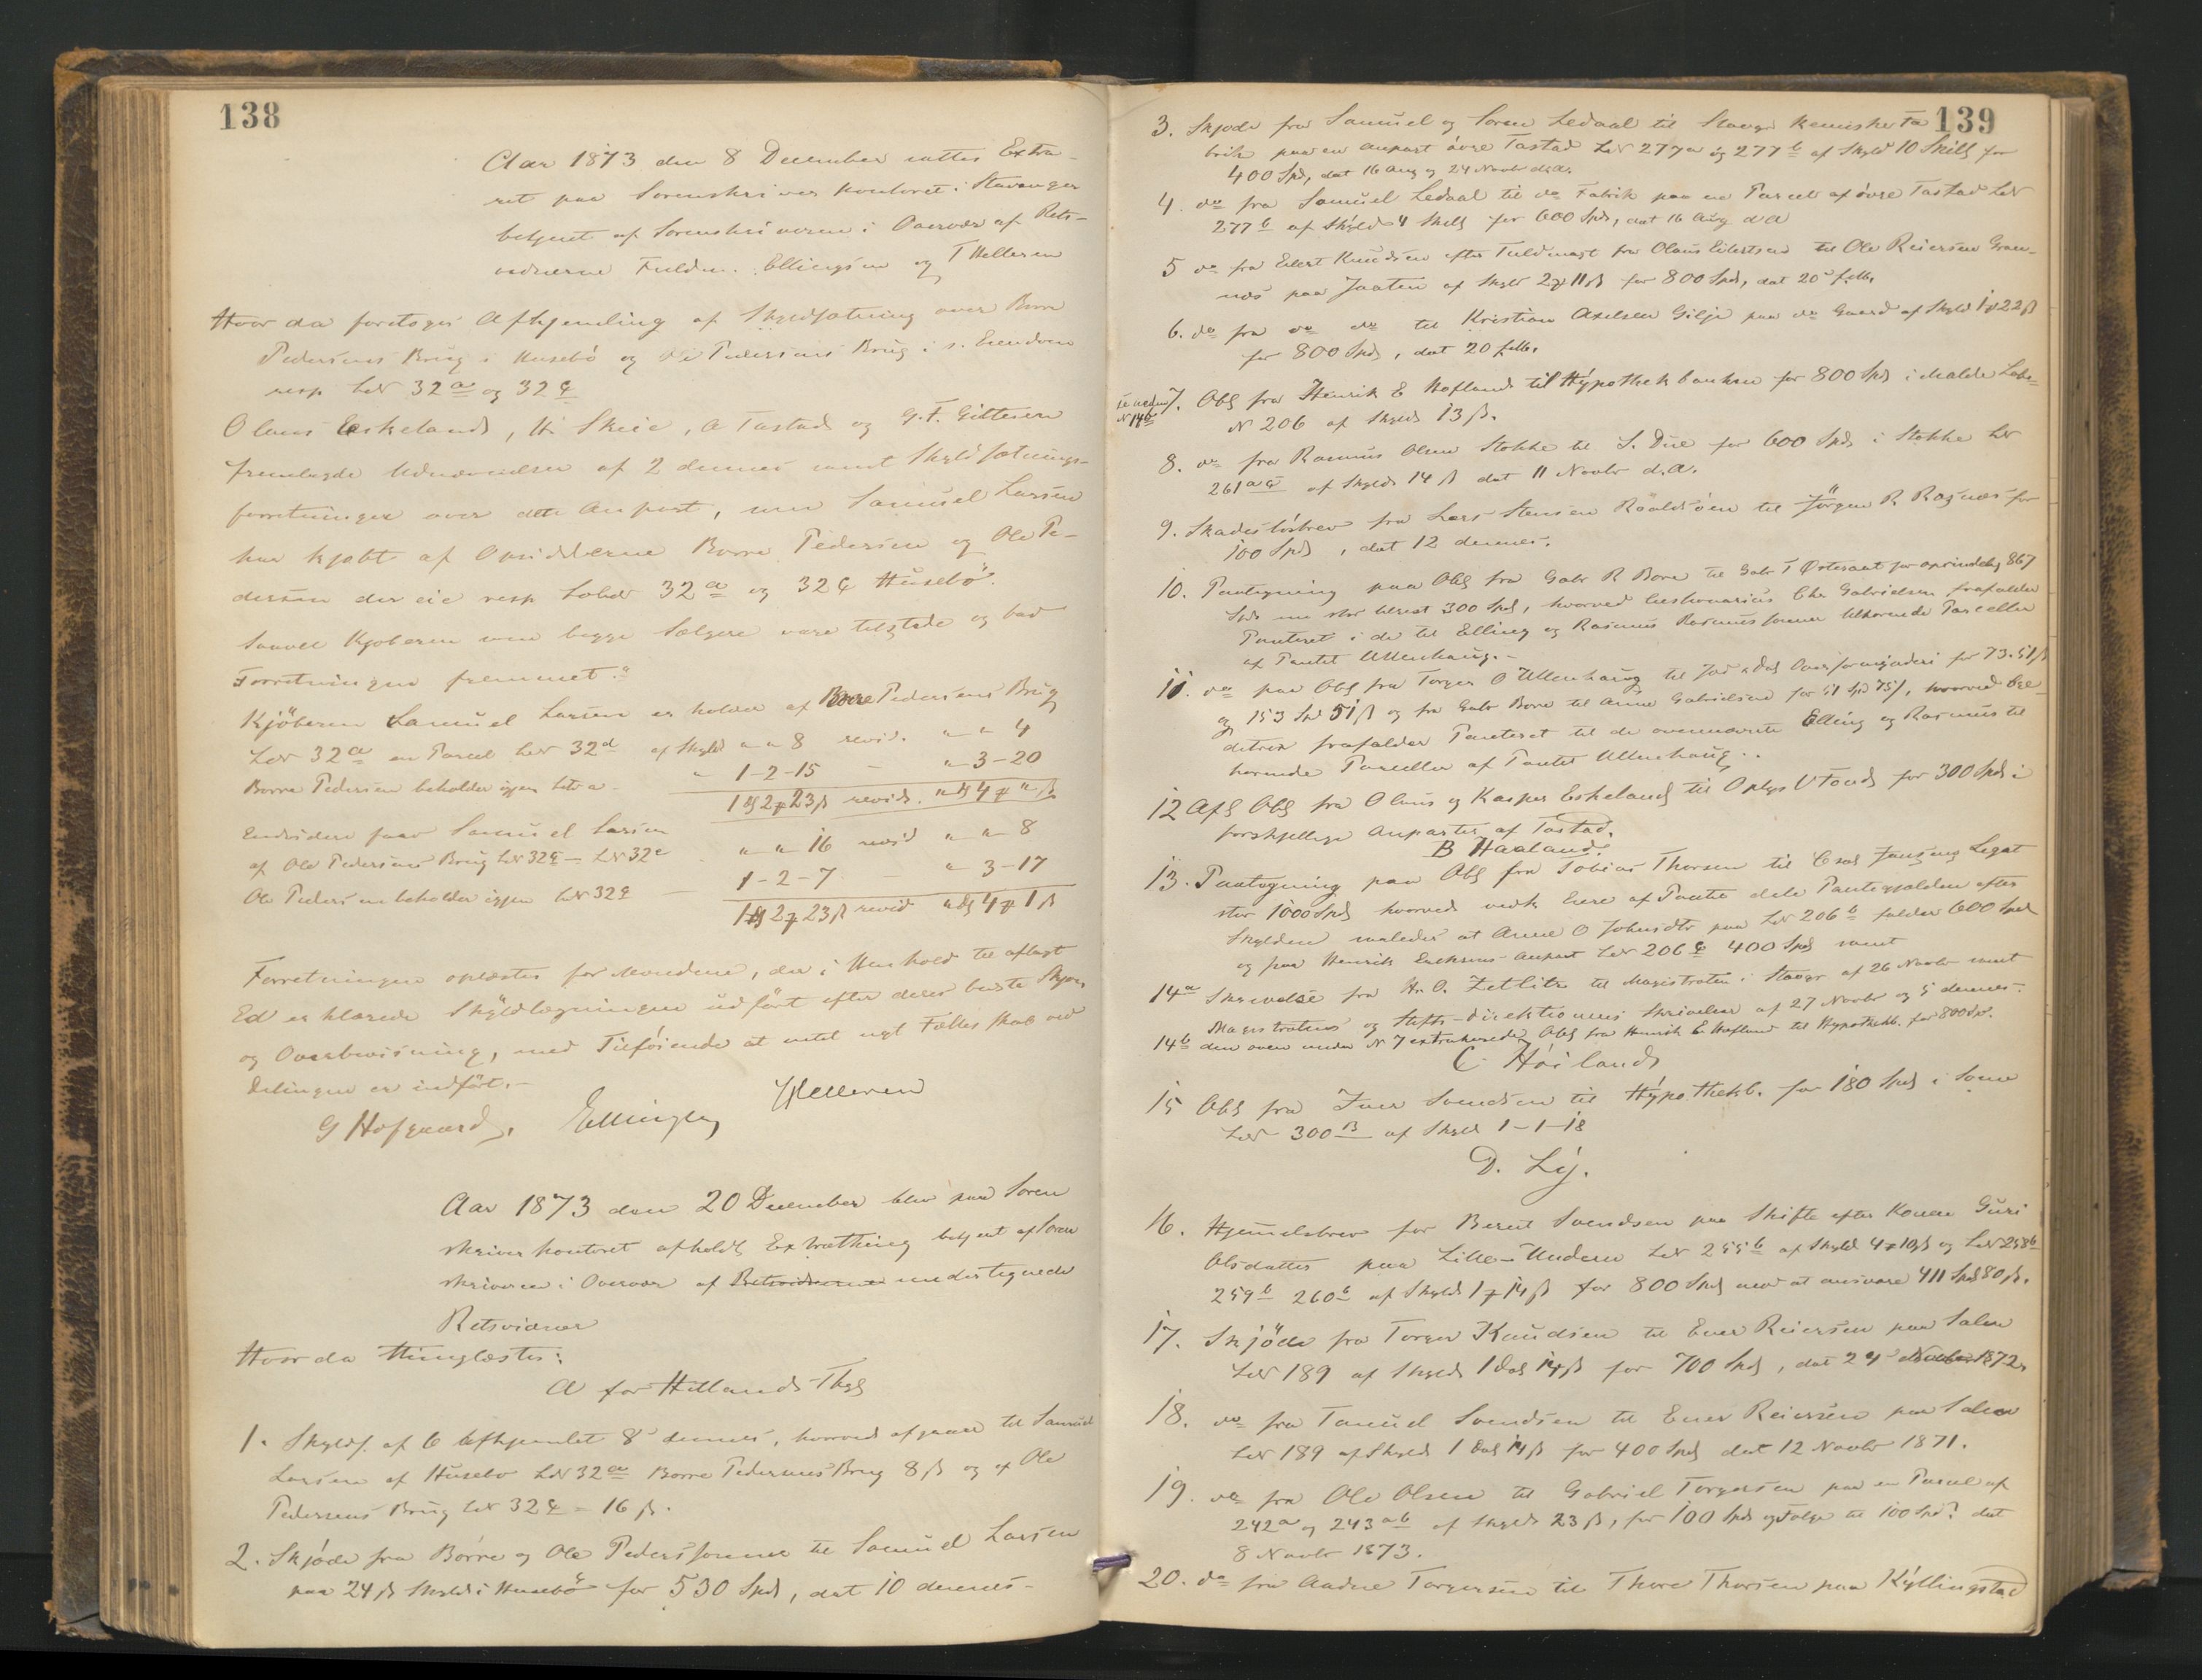 138
Aar 1873 den 8 December sattes Extra-
ret paa Sorenskriver kontoret i Stavanger
betjent af Sorenskriveren i Overvær af Rets-
vidnerne Fuldm. Ellingsen og T Helleren
Hvor da foretoges Afhjemling af Skyldsætning over Borre
Pedersens Brug i Husebö og Ole Pedersens Brug i s. Eiendom
resp Lnr 32a og 32c
Olaus Eskeland, H. Skeie, A Tastad og G. F. Gittesen
fremlagde Udnævnelsen af 2 dennes samt Skyldsætnings-
forretninger over den Anpart, som Samuel Larsen
har kjøbt af Opsidderne Borre Pedersen og Ole Pe-
dersen der eie resp Lnr 32a og 32c Husebö.
Saavel Kjøberen som begge Sælgere vare tilstede og bad
Forretningen fremmet.
Kjöberen Samuel Larsen er holder af Borre Pedersens Brug
Lnr 32a en Parcel Lnr 32d af Skyld " " 8 revid. " " 4
Borre Pedersen beholder igjen litr a - " 1-2-15 - " 3-20
1 D 2 # 23 ß revid. " D 4 # " ß
Endvidere faar Samuel Larsen
af Ole Pedersens Brug Lnr 32c - Lnr 32e " " 16 revid " " 8
Ole Pedersen beholder igjen Lnr 32c - 1-2-7 - " 3-17
1 D 2 # 23 ß revid " D 4 # 1 ß
Forretningen oplæstes for Mændene, der i Henhold til aflagt
Ed erklærede Skyldlægningen udfört efter deres bedste Skjön
og Overbevisning, med Tilföiende at intet nyt Fællesskab ved
Delingen er indfört.-
G Hofgaard. Ellingsen T Helleren
Aar 1873 den 20 December blev paa Soren
skriverkontoret afholdt Extrathing betjent af Soren
skriveren i Overvær af Retsvidnerne undertegnede
Retsvidner
Hvor da Thinglæstes:
A for Hetlands Thgl
1. Skyldf. af 6 afhjemlet 8 dennes, hvorved afgaaer til Samuel
Larsen af Husebo Lnr 32a Borre Pedersens Brug 8 ß og af Ole
Pedersens Brug Lnr 32c = 16 ß.
2. Skjöde fra Borre og Ole Pederssønner til Samuel Larsen
paa 24 ß Skyld i Husebö for 530 Spd, dat 10 dennes-
139
3. Skjøde fra Samuel og Soren Ledaal til Stavgr kemiske Fa
brik paa en Anpart övre Tastad Lnr 277a og 277b af Skyld 10 Skill for
400 Spd, dat 16 Aug og 24 Novbr d.A.
4. do fra Samuel Ledaal til do Fabrik paa en Parcel af övre Tastad Lnr
277b af Skyld 4 Skill for 600 Spd, dat 16 Aug d A
5 do fra Eilert Knudsen efter Fuldmagt fra Olaus Eilertsen til Ole Reiersen Gran-
næs paa Jaaten af Skyld 2 # 11 ß for 800 Spd, dat 20 febr.
6. do fra do do til Kristian Axelsen Gilje paa do Gaard af Skyld 1 # 22 ß
for 800 Spd, dat 20 febr.
se neden
N 14b
7. Obl fra Henrik E Hofland til Hypothekbanken for 800 Spd i Malde Løbe-
N 206 af Skyld 13 ß.
8. do fra Rasmus Olsen Stokke til S. Due for 600 Spd i Stokke Lnr
261a c af Skyld 14 ß dat 11 Novbr d.A.
9. Skadeslösbrev fra Lars Stensen Roaldsöen til Jörgen P. Ragnæs for
100 Spd, dat 12 dennes.
10. Paategning paa Obl fra Gabr R Bore til Gabr T Østeraat for oprindelig 867
Spd nu stor tilrest 300 Spd, hvorved Cessionarius Chr Gabrielsen frafalder
Panteret i de til Elling og Rasmus Rasmussønner tilhørende Parceller
af Pantet Ullenhaug.-
11. do paa Obl fra Torger O Ullenhaug til Jæd & Dal Overformynderi for 73.51 ß
og 153 Spd 51 ß og fra Gabr Bore til Anne Gabrielsen for 51 Spd 75 ß, hvorved Kre-
ditrix frafalder Panteret til de ovennævnte Elling og Rasmus til
hørende Parceller af Pantet Ullenhaug.
12 Afl Obl fra Olaus og Kasper Eskeland til Oplys V Fond for 300 Spd i
forskjellige Anparter af Tastad.
B Haaland.
13. Paategning paa Obl fra Tobias Thorsen til Legat
stor 1000 Spd hvorved vedk Eiere af Pantet dele Pantegjælden efter
Skylden saaledes at Anne O Johnsdtr paa Lnr 206b falder 600 Spd
og paa Henrik Eriksens Anpart Lnr 206c 400 Spd samt
14a Skrivelse fra Hr O. Zetlitz til Magistraten i Stavgr af 26 Novbr samt
Magistratens og Stifts-direktionens Skrivelser af 27 Novbr og 5 dennes.
14b den oven under N 7 extraherede Obl fra Henrik E. Hofland til Hypothekb. for 800 Spd.
C Höiland
15 Obl fra Iver Svendsen til Hypothekb. for 180 Spd i Some
Lnr 300 B af Skyld 1-1-18
D. Ly.
16. Hjemmelsbrev for Berent Svendsen paa Skifte efter Konen Guri
Olsdatter paa Lille-Undem Lnr 255b af Skyld 4 # 10 ß og Lnr 258b
259b 260b af Skyld 1 # 14 ß for 800 Spd mod at ansvare 411 Spd 80 ß.
17. Skjöde fra Torger Knudsen til Ener Reiersen paa Salen
Lnr 189 af Skyld 1 Dal 14 ß for 700 Spd, dat 24 Novbr 1872.
18. do fra Tønnes Svendsen til Ener Reiersen paa Salen
Lnr 189 af Skyld 1 Dal 14 ß for 400 Spd dat 12 Novbr 1871.
19. do fra Ole Olsen til Gabriel Torgersen paa en Parcel af
242a og 243a b af Skyld 23 ß, for 100 Spd og Følge til 100 Spd? dat
8 Novbr 1873.
20. do fra Aadne Torgersen til Thore Thorsen paa Kyllingstad